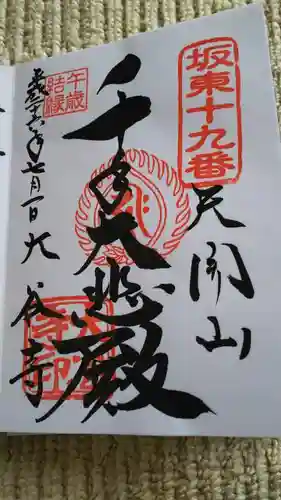 坂東十九番
天開山
千手大悲殿
午歳
結縁
平成二十六年七月一日
大谷寺
寺印